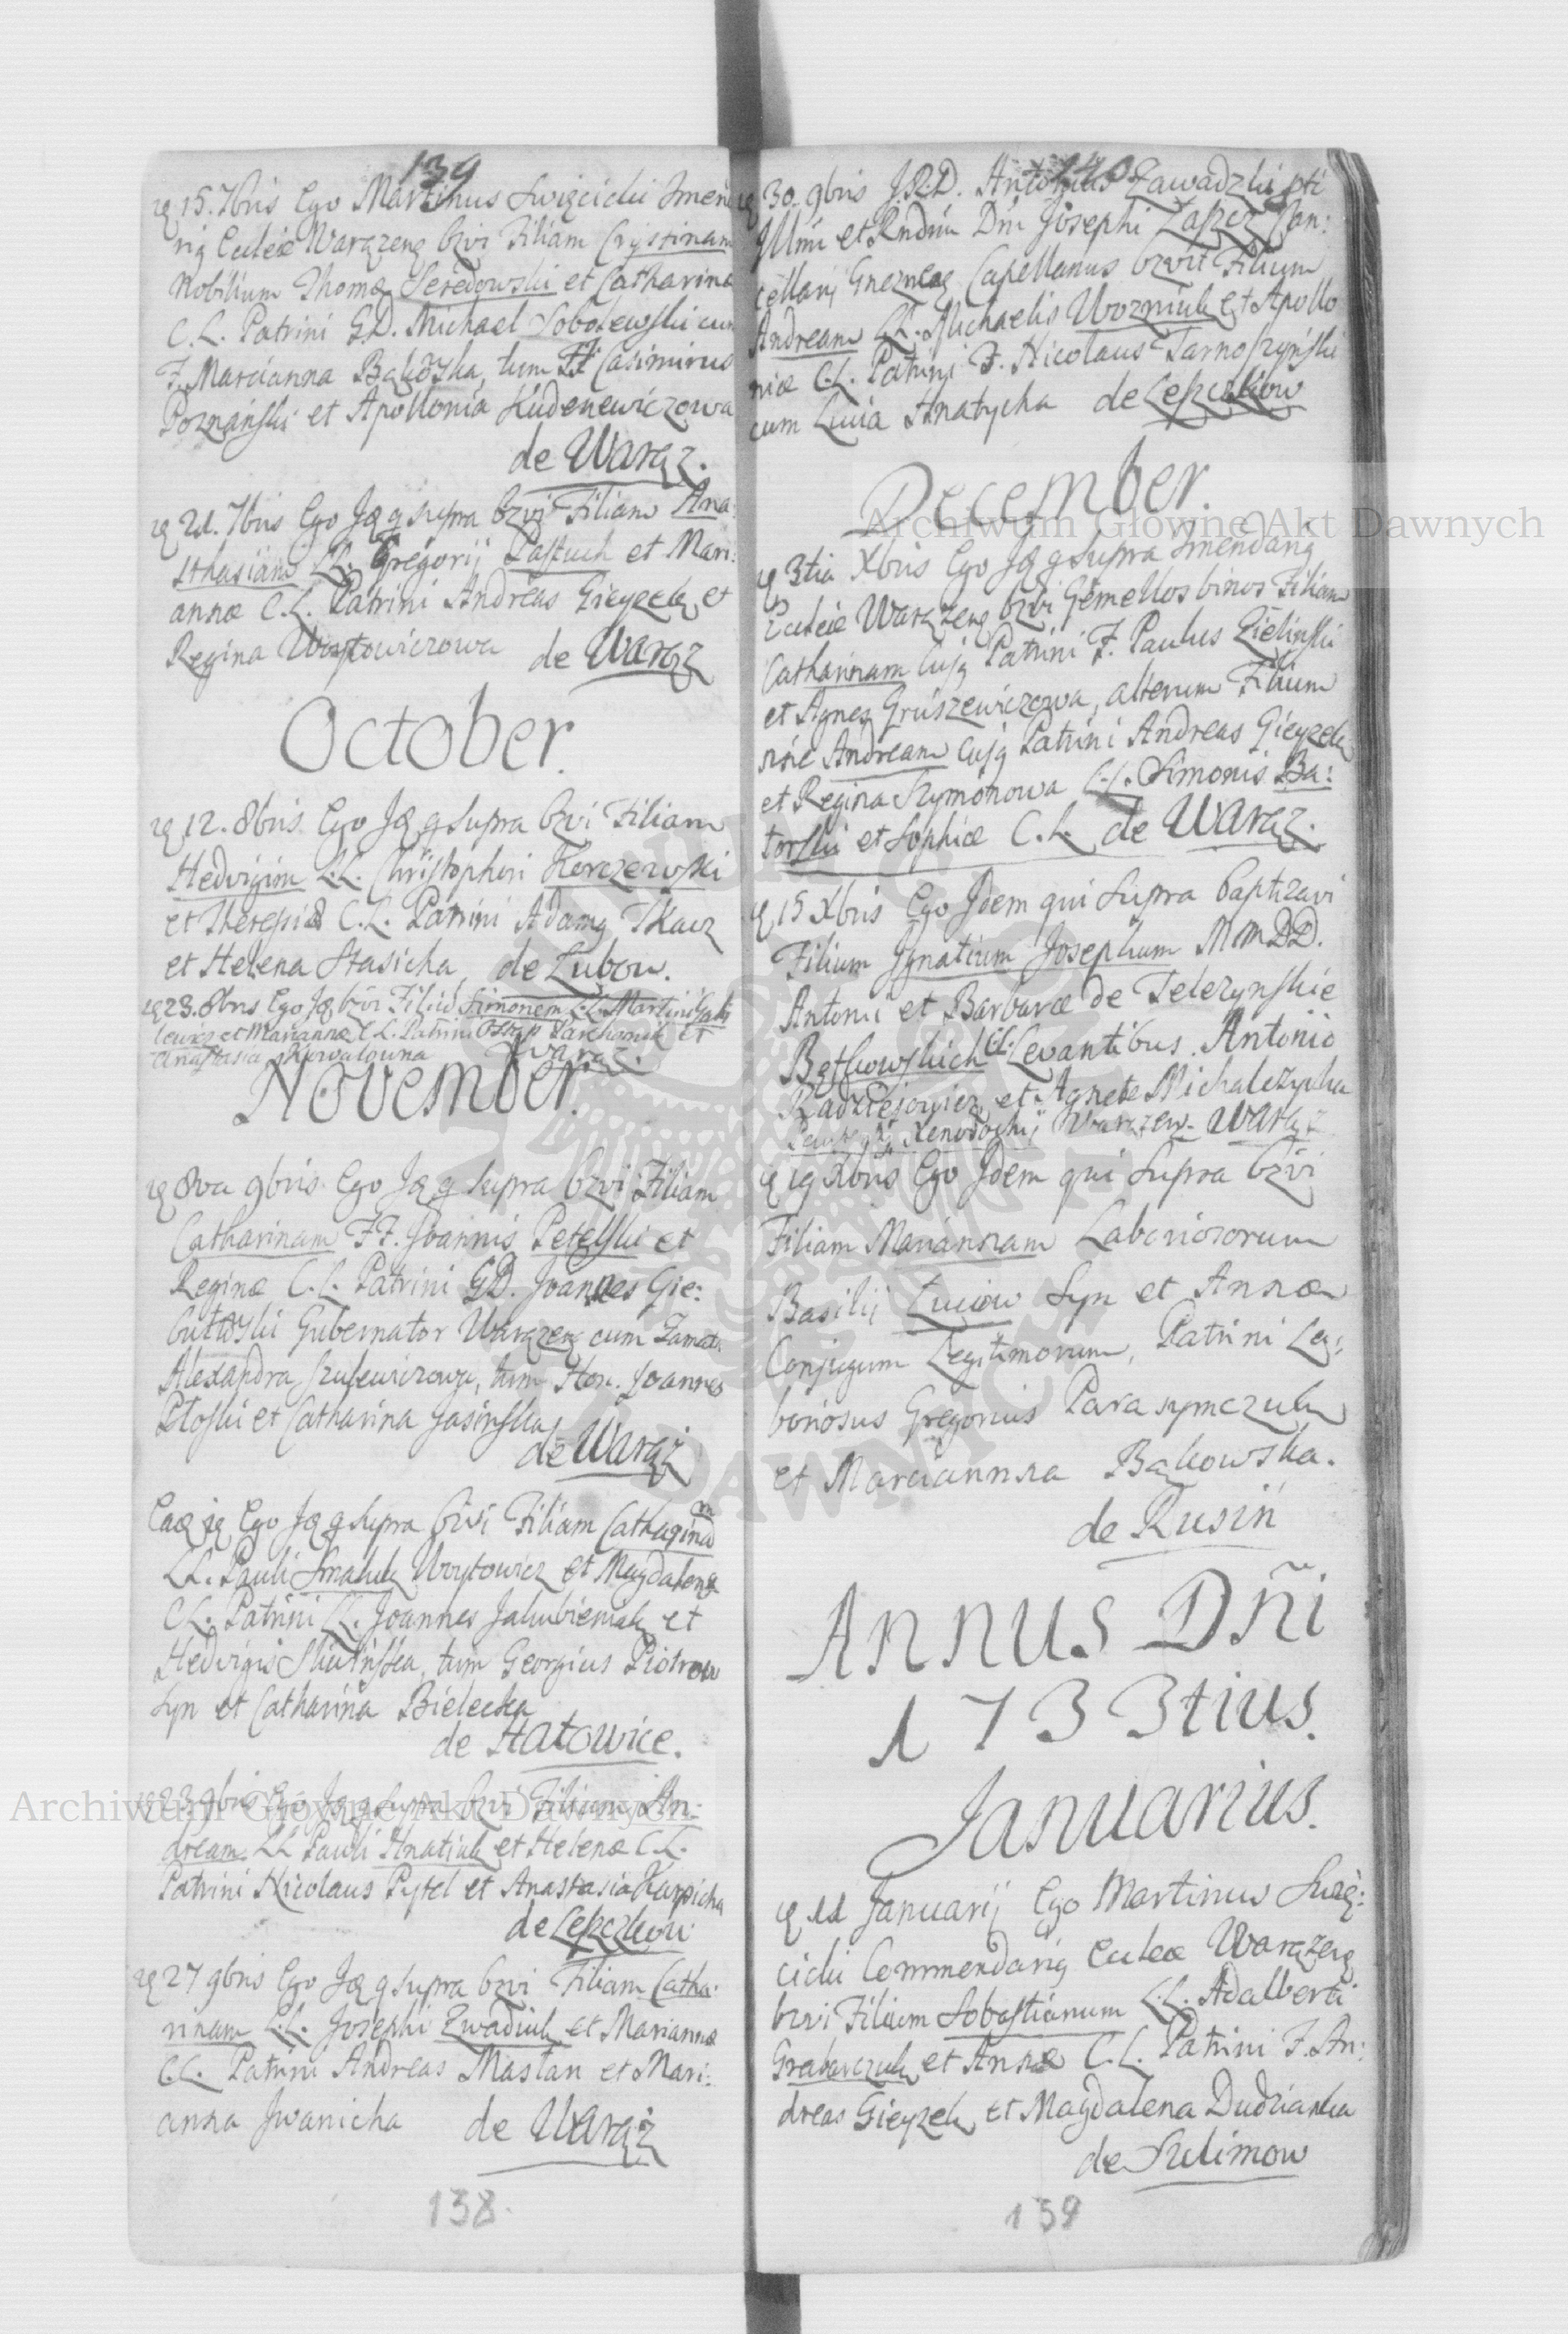 139
15. 7bris Ego Martinus Swięcicki Cmen
rią Eccleæ Warązens bzvi Filiam Crystinam
Nobilium Thomæ Seredowski et Catharina
C.L. Patrini GD. Michael Sobolewski cum
F. Marcianna Bąkowska, tum F. Casimirus
Poznański et Apollonia Kudenewiczowa
de Warąz.
21. 7bris Ego Jdę q supra bzvi Filiam Ana
sthasiam LL. Gregorij Pastuch et Mari:
annæ C.L. Patrini Andreas Gieyzek et
Regina Woytowiczowa de Warąz
October.
12. 8bris Ego Jdę q supra bzvi Filiam
Hedvigim LL. Christophori Korczewski
et Theresiæ C.L. Patrini Adamg Tkacz
et Helena Stasicha de Lubow.
23. 8bris Ego Jdę bzvi Filiū Simonem LL. Martini
et Mariannæ C.L. Patrini Parchomik et
Anastasia Kowalowna Waraz.
November.
8va 9bris Ego Jdę q supra bzvi Filiam
Catharinam FF. Joannis Petelski et
Reginæ C.L. Patrini GD. Joannes Gie:
bułtowski Gubernator Warązens cum Famata
Alexandra Szulewiczowa, tum Hon. Joannes
Płoski et Catharina Jasinska
de Warąż
Eadē Ego Jdę q supra bzvi Filiam Catharinam
LL. Pauli Smaluk Woytowicz et Magdalenæ
C.L. Patrini LL. Joannes Jakubieniak et
Hedvigis tum Georgius Piotrow
Syn et Catharina Bielecka
de Hatowice.
23 9bris Ego Jdę q supra bzvi Filium An:
dream LL Pauli Hnatiuk et Helenæ C.L.
Patrini Nicolaus Pytel et Anastasia Karpicha
de Leszczkow
27 9bris Ego Jdę q supra bzvi Filiam Catha:
rinam LL. Josephi Zwadiuk et Mariannæ
C.L. Patrini Andreas Maslan et Mari:
anna Jwanicha de Warąż
138.
140.
30. 9bris J.R.D. Antonius Zawadzki pti
Jllmi et Rndmi Dni Josephi Łaszcz Can:
cellarij Gneznens Capellanus bzvit Filium
Andream LL. Michaelis Wozniuk et Apollo
niæ C.L. Patrini F. Nicolaus Tarnoszyński
cum Lucia Hnatycha de Leszczkow
December.
3tia Xbris Ego Jdę q supra Cmendarig
Eccleiæ Warązens bzvi Gemellos binos Filiam
Catharinam Cujg Patrini F. Paulus Zielinski
et Agnes Gruszewiczowa, alterum Filium
nñe Andream Cujg Patrini Andreas Gieyzek
et Regina Szymonowa LL. Simonis Ba:
torski et Sophiæ C.L. de Warąz.
15 Xbris Ego Jdem qui supra baptizavi
Filium Jgnatium Josephum MMDD.
Antonii et Barbaræ de Telezynskie
Bętkowskich CL. Levantibus Antonio
Radziejowicz et Agnete Michalczycha
Xenodochij Warązen. Warąz
19 Xbris Ego Jdem qui supra bzvi
Filiam Mariannam Laboriosorum
Basilij Łuciow Syn et Annæ
Conjugum Legitimorum, Patrini La:
boriosus Gregorius Parasymczuk
et Marciannna Bąkowska.
de Rusin
Annus Dñi
1733tius.
Januarius.
11 Januarij Ego Martinus Swię:
cicki Commendarig Eccleæ Warązens
bzvi Filium Sobastianum LL. Adalberti
Grabarczuk et Annæ C.L. Patrini F. An:
dreas Gieyzek et Magdalena Dudzianka
de Sulimow
139
Archiwum Główne Akt Dawnych
Archiwum Główne Akt Dawnych